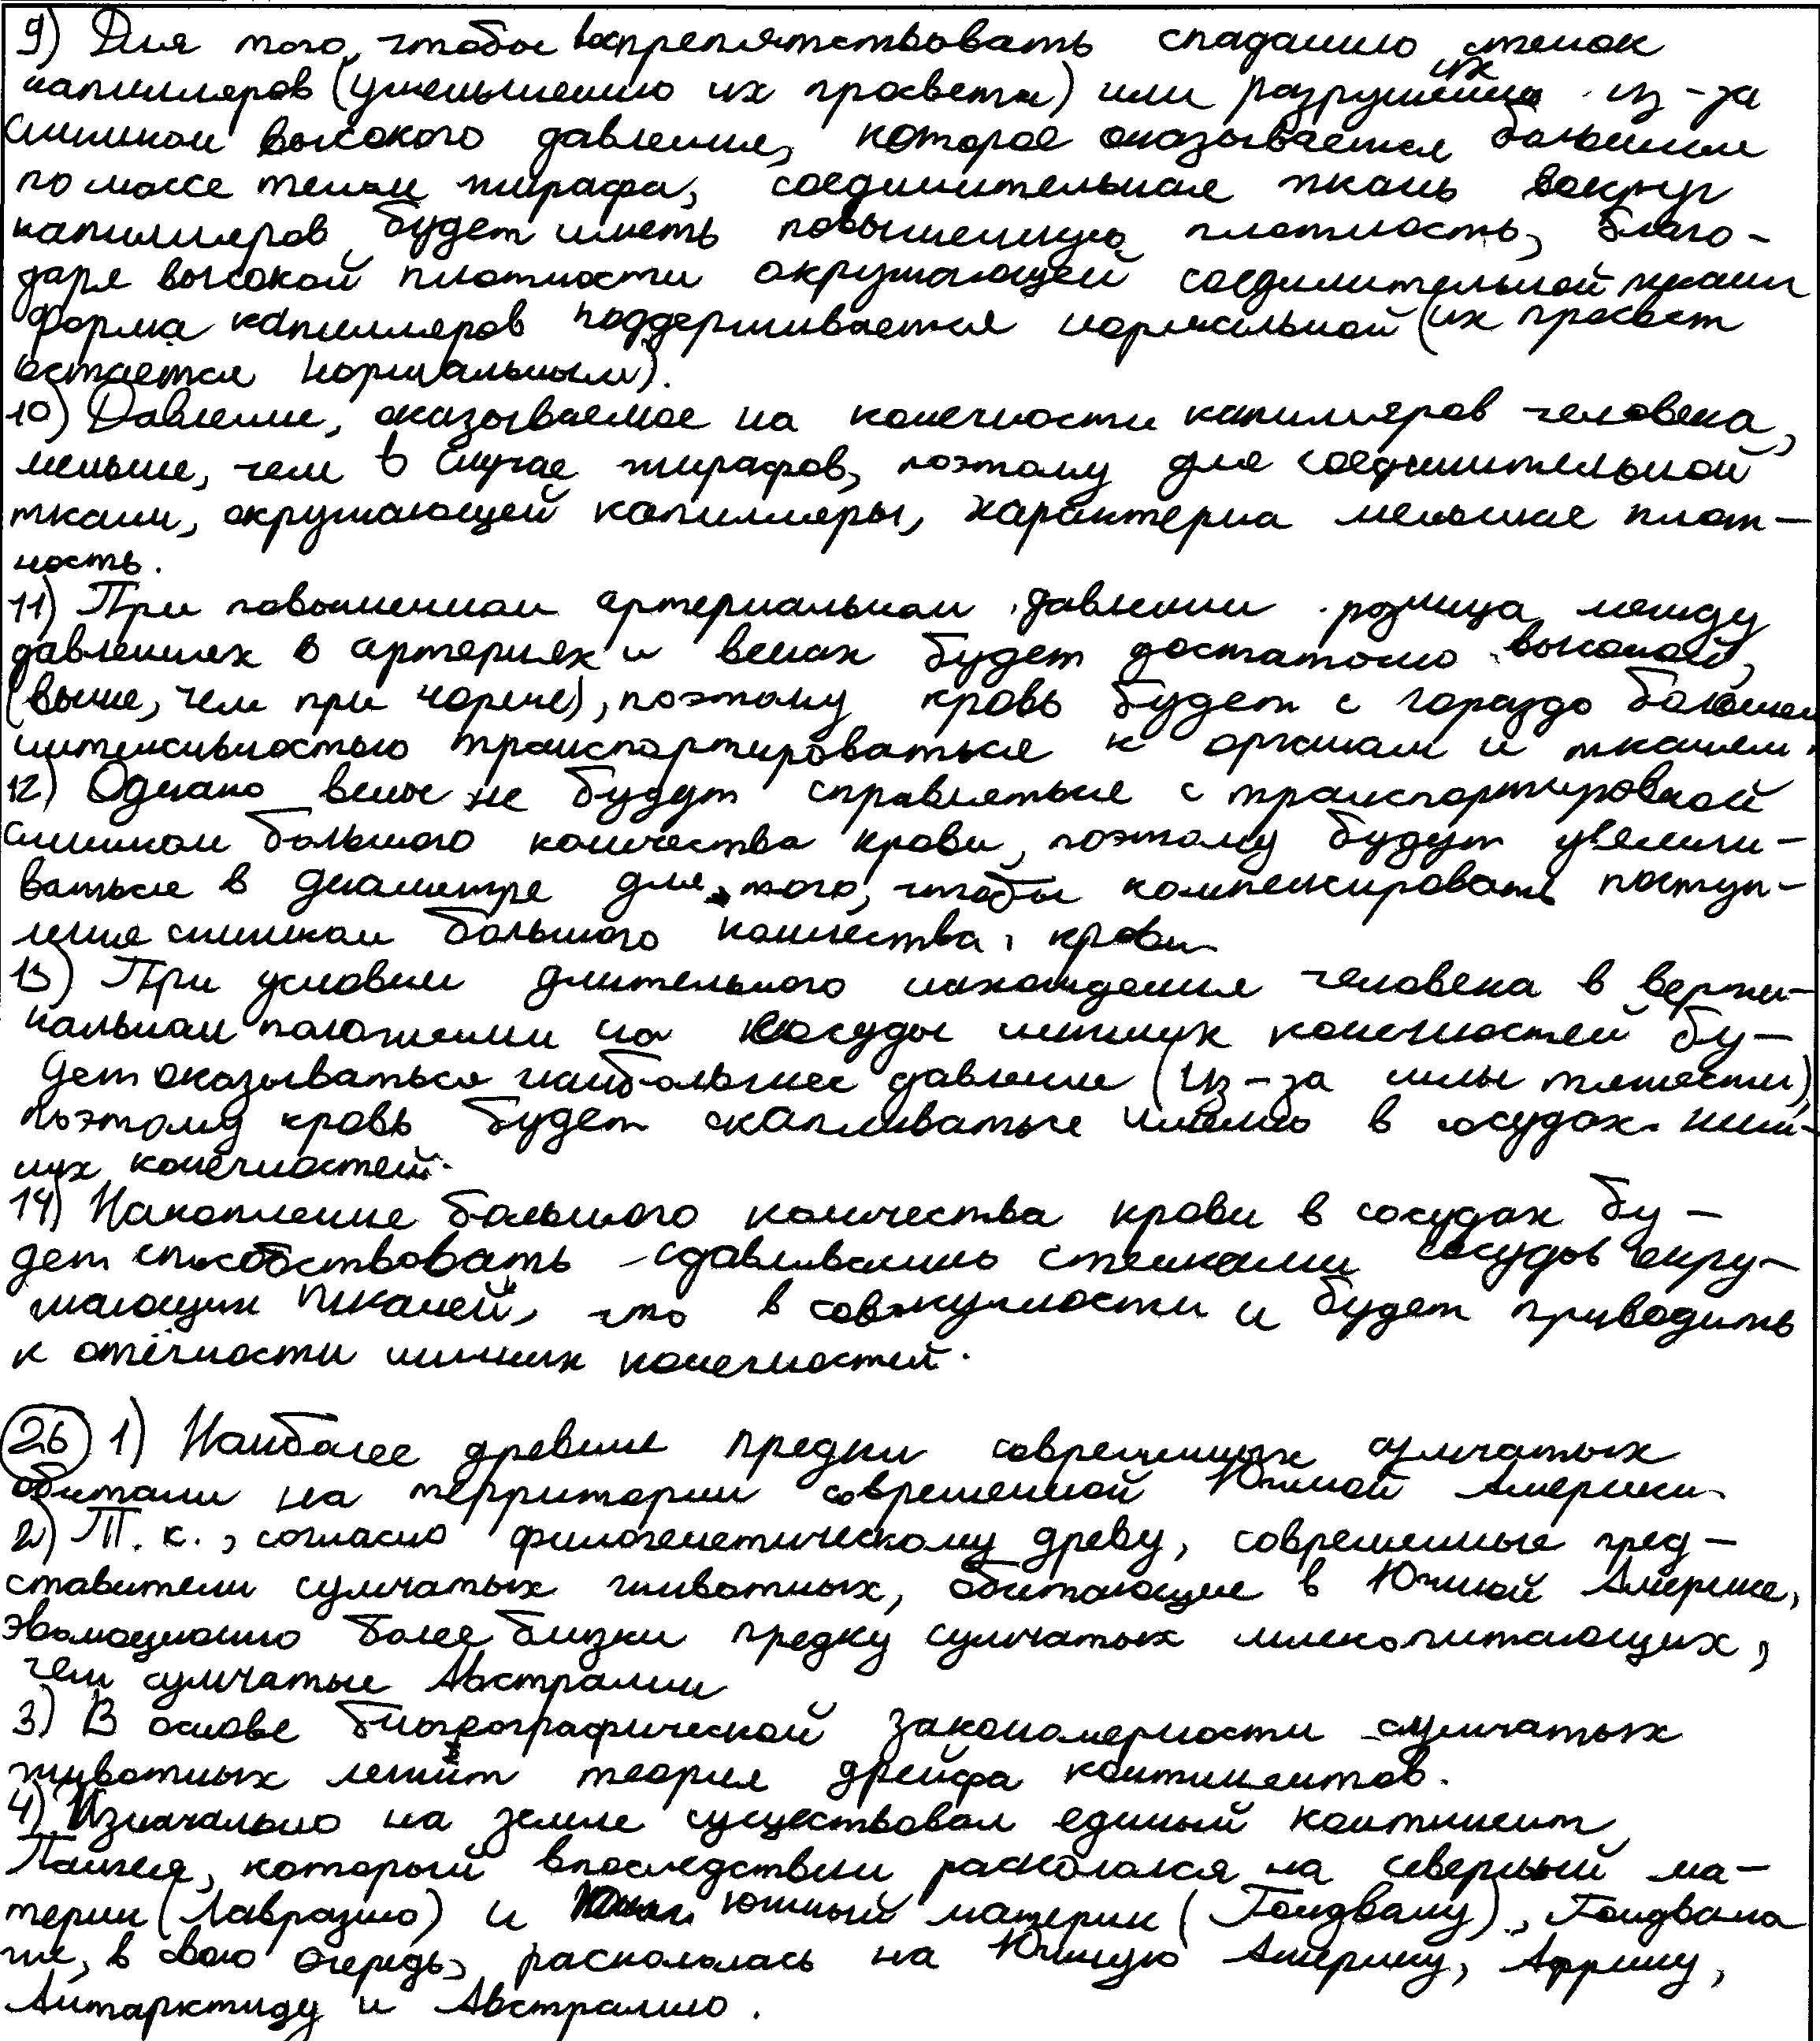 9) Для того, чтобы воспрепятствовать спаданию стенок
капилляров (уменьшению их просвета) или разрушению их из-за
слишком высокого давления, которое оказывается большим
по массе телом жирафа, соединительная ткань вокруг
капилляров будет иметь повышенную плотность, благо-
даря высокой плотности окружающей соединительной ткани
форма капилляров поддерживается нормальной (их просвет
остаётся нормальным).
10) Давление, оказываемое на конечности капилляров человека,
меньше, чем в случае жирафов, поэтому для соединительной
ткани, окружающей капилляры, характерна меньшая плот-
ность.
11) При повышенном артериальном давлении разница между
давлениях в артериях и венах будет достаточно высокой,
(выше, чем при норме), поэтому кровь будет с гораздо большей
интенсивностью транспортироваться к органам и тканям.
12) Однако вены не будут справляться с транспортировкой
слишком большого количества крови, поэтому будут увеличи-
ваться в диаметре для того, чтобы компенсировать поступ-
ления слишком большого количества крови
13) При условии длительного нахождения человека в верти-
кальном положении на сосуды нижних конечностей бу-
дет оказываться наибольшее давление (из-за силы тяжести),
поэтому кровь будет скапливаться именно в сосудах ниж-
них конечностей.
14) Накопление большого количества крови в сосудах бу-
дет способствовать сдавливанию стенками сосудов окру-
жающих тканей, что в совокупности и будет приводить
к отёчности нижних конечностей.
26 1) Наиболее древние предки современных сумчатых
обитали на территории современной Южной Америки.
2) Т. к., согласно филогенетическому древу, современные пред-
ставители сумчатых животных, обитающие в Южной Америке,
эволюционно более близки предку сумчатых млекопитающих,
чем сумчатые Австралии
3) В основе биогеографической закономерности сумчатых
животных лежит теория дрейфа континентов.
4) Изначально на земле существовал единый континент
Пангея, который впоследствии раскололся на северный ма-
терик (Лавразию) и южный материк (Гондвану), Гондвана
же, в свою очередь, раскололась на Южную Америку, Африку,
Антарктиду и Австралию.